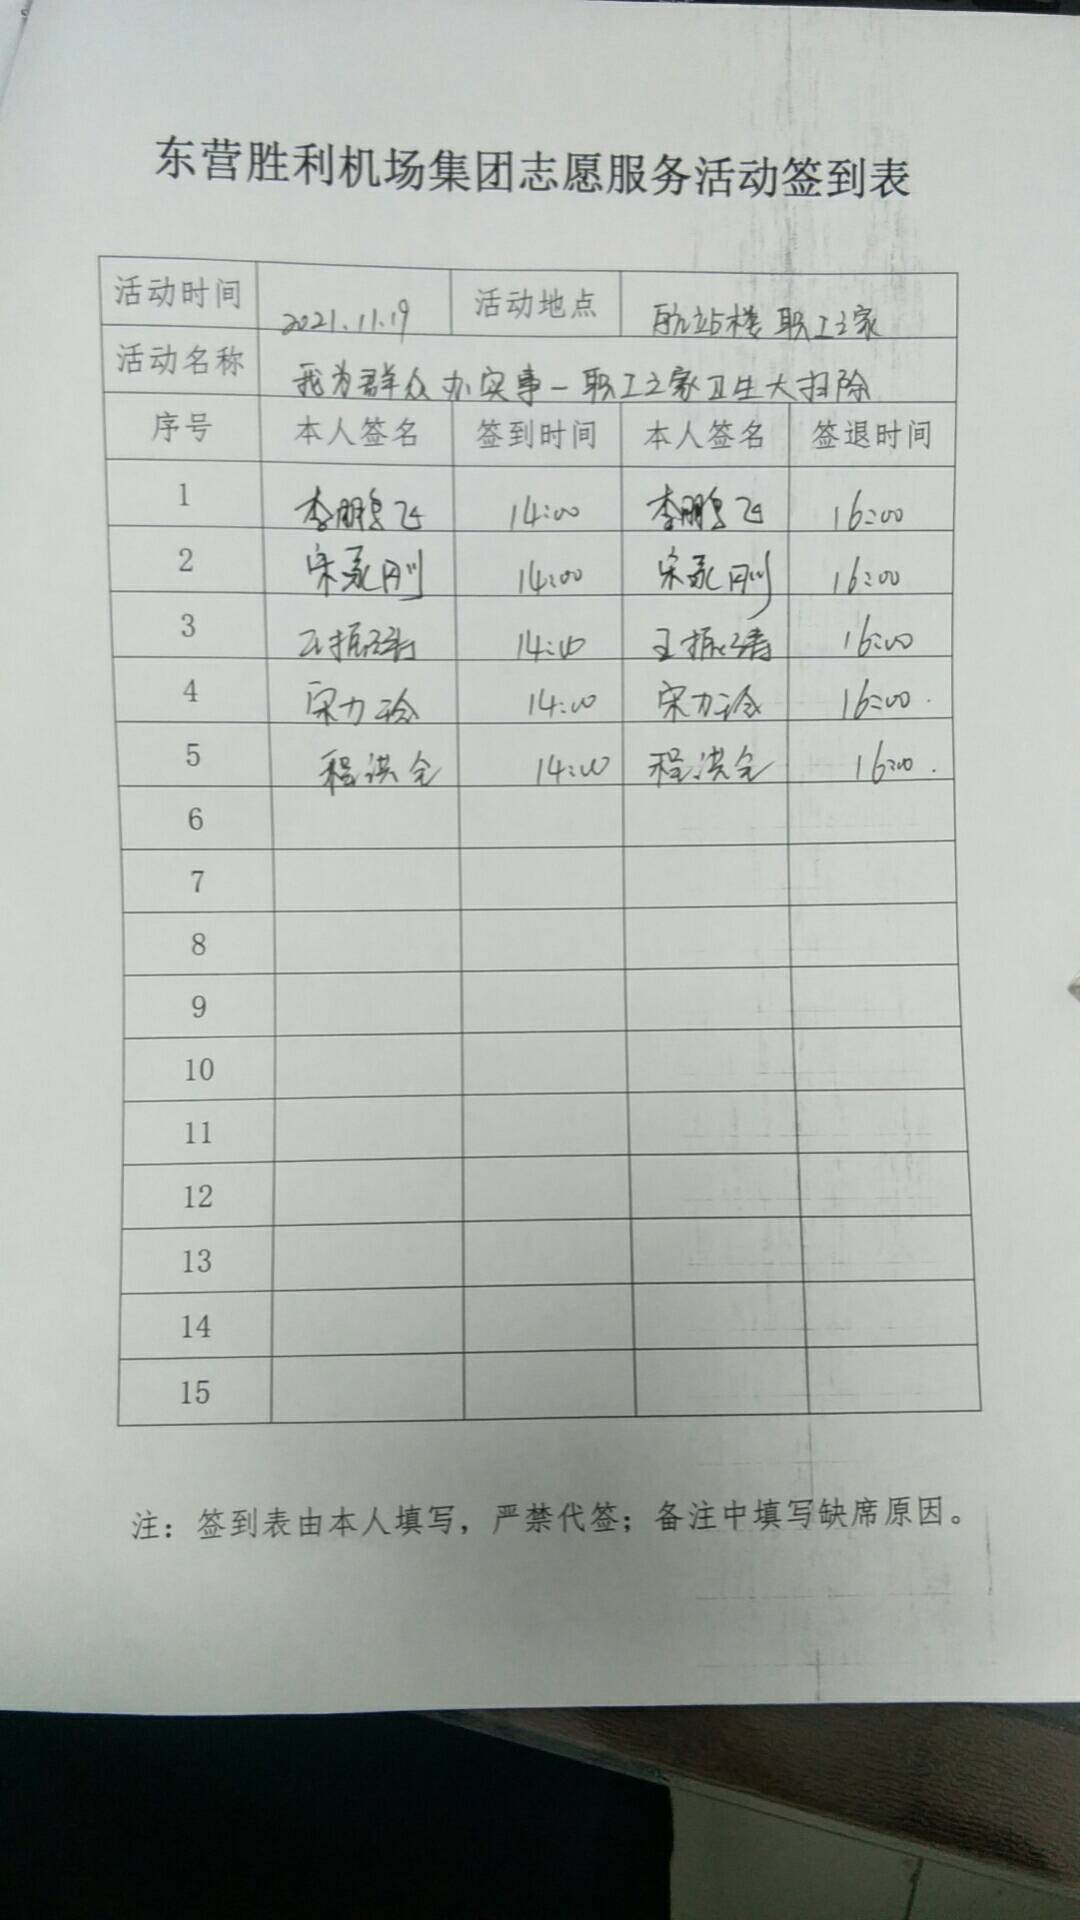 东营胜利机场集团志愿服务活动签到表
活动时间 2021.11.19 活动地点 航站楼职工之家
活动名称 我为群众办实事—职工之家卫生大扫除
序号 本人签名 签到时间 本人签名 签退时间
1 李鹏飞 14:00 李鹏飞 16:00
2 宋永刚 14:00 宋永刚 16:00
3 王振涛 14:00 王振涛 16:00
4 宋力 14:00 宋力 16:00
5 程洪全 14:00 程洪全 16:00
6
7
8
9
10
11
12
13
14
15
注：签到表由本人填写，严禁代签；备注中填写缺席原因。